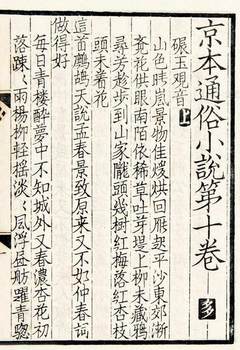 京本通俗小說第十卷 多
碾玉观音 上
山色晴嵐景物佳煖烘回雁起平沙東郊漸
斍花供眼南陌依稀草吐芽堤上柳未藏鴉
尋芳趂步到山家隴頭幾樹紅梅落紅杏枝
頭未着花
這首鷓鴣天說孟春景致原来又不如仲春詞
做得好
每日青楼醉夢中不知城外又春濃杏花初
落踈〻雨楊柳輕揺淡〻風浮画舫躍青驄